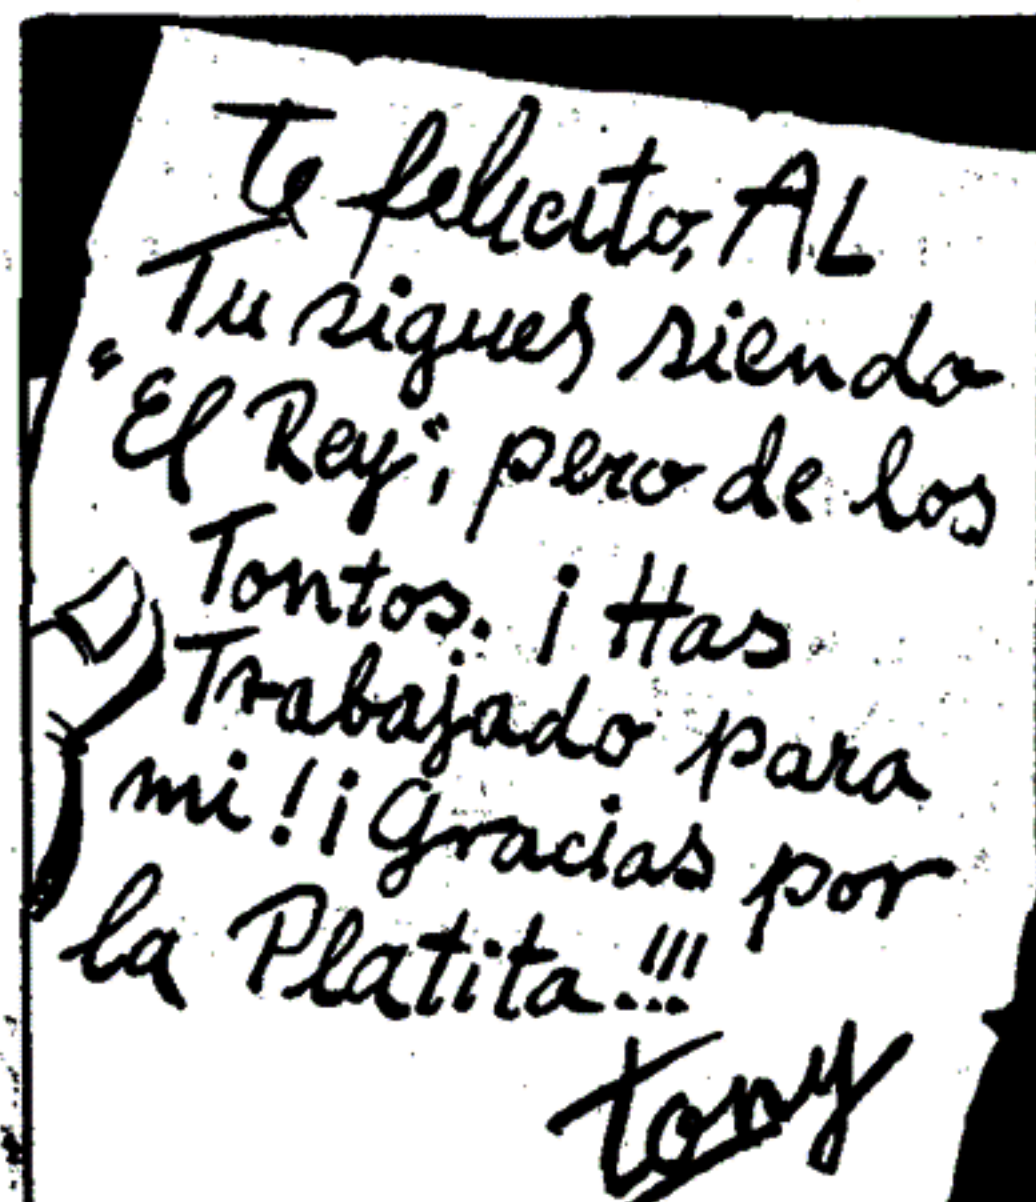 Te felicito, AL
Tu sigues siendo
"El Rey", pero de los
Tontos. ¡Has
Trabajado para
mi! ¡Gracias por
la Platita!!!
tony